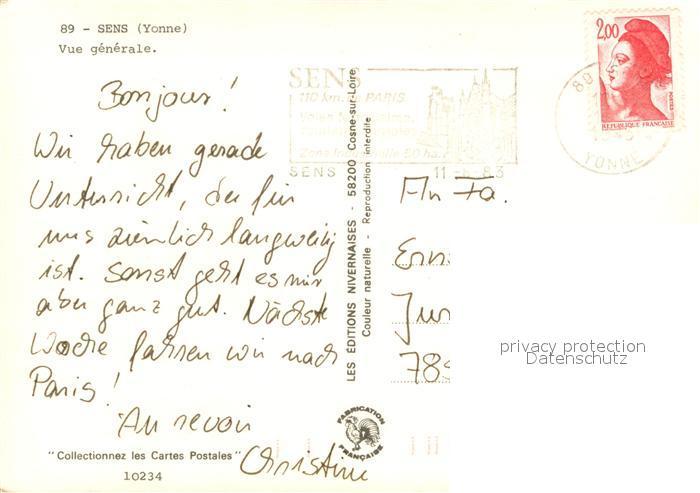 89 - SENS (Yonne)
Vue générale.
Bonjour!
Wir haben gerade
Unterricht, der für
uns ziemlich langweilig
ist. Sonst geht es mir
aber ganz gut. Nächste
Woche fahren wir nach
Paris!
Au revoir
Christine
"Collectionnez les Cartes Postales"
10234
LES ÉDITIONS NIVERNAISES - 58200 Cosne-sur-Loire
Couleur naturelle - Reproduction interdite
FABRICATION
FRANÇAISE
SENS
110 km de PARIS
SENS
83
89
YONNE
2,00
POSTES
REPUBLIQUE FRANÇAISE
An Fa.
Ern
Jun
789
privacy protection
Datenschutz